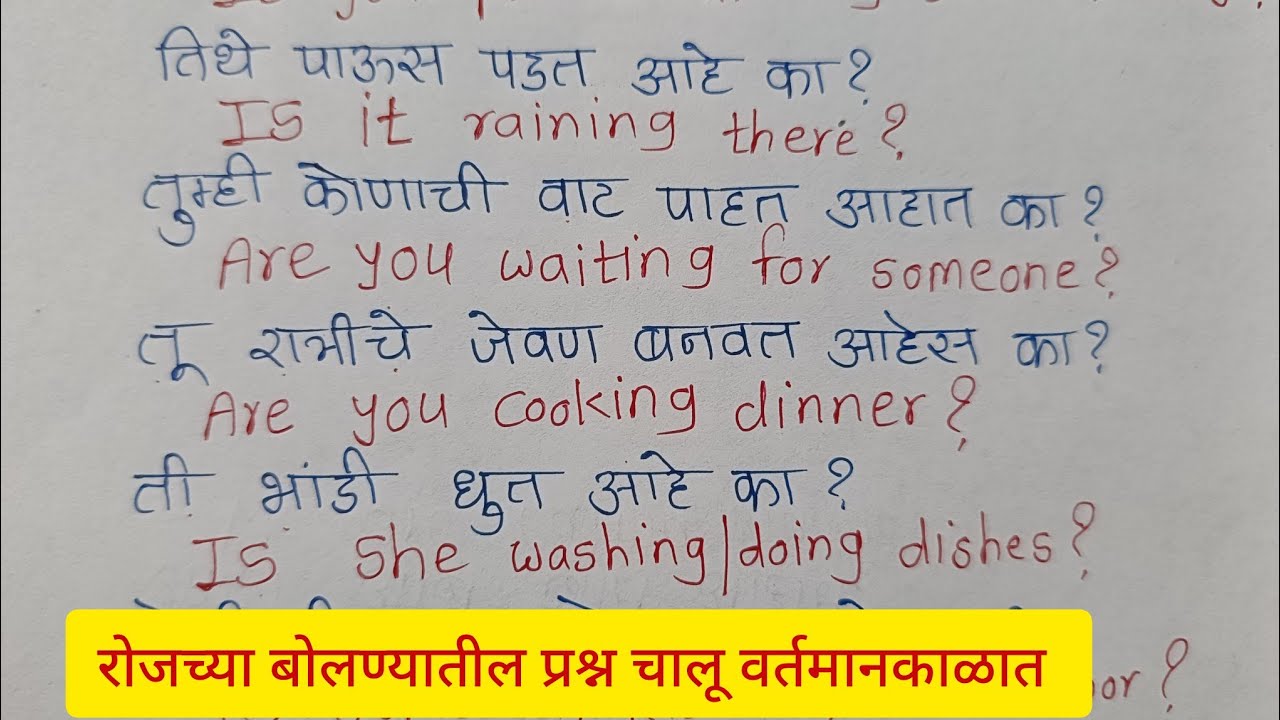 तिथे पाऊस पडत आहे का?
Is it raining there?
तुम्ही कोणाची वाट पाहत आहात का?
Are you waiting for someone?
तू रात्रीचे जेवण बनवत आहेस का?
Are you cooking dinner?
ती भांडी धुत आहे का?
Is she washing/doing dishes?
रोजच्या बोलण्यातील प्रश्न चालू वर्तमानकाळात